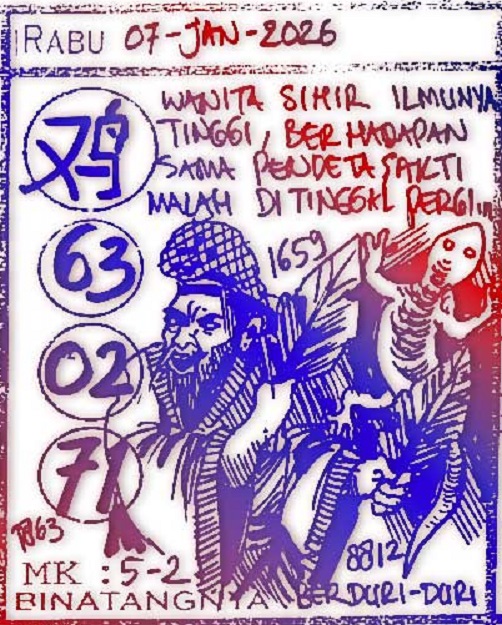 RABU 07-JAN-2026
WANITA SIHIR ILMUNYA
TINGGI, BERHADAPAN
SAMA PENDETA SAKTI
MALAH DITINGGAL PERGI...
鸡
63
1659
02
71
7863
8812
MK : 5-2
BINATANGNYA BERDURI-DURI